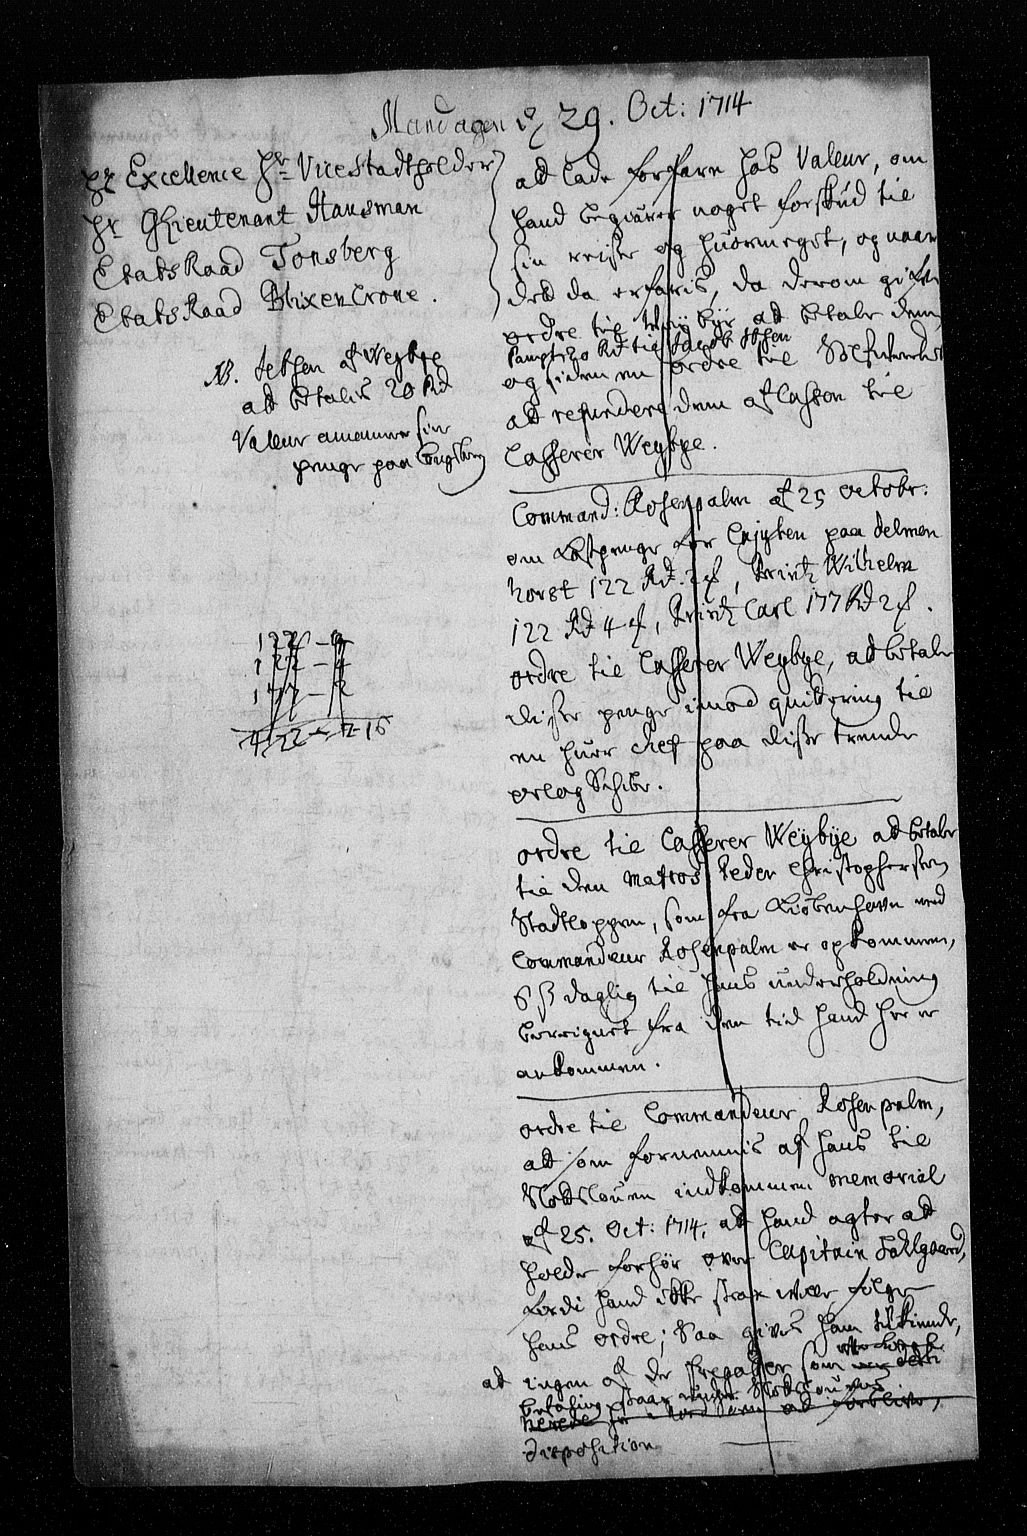 Mandagen d 29. Oct: 1714
Hr Excellence Hr Vicestadtholder
Hr GLieutenant Hausman
Etats Raad Tonsberg
Etats Raad Blixencrone.
NB. Jebsen af Weybye
at betalis 20 Rd
Valeur annammer sine
penge paa Congsberg
122 - 2
122 - 4
177 - 2
422 - 2 - 16
at lade forfare hos Valeur, om
hand begiærer noget forskud til
sin reise og huormeget, og naar
det da erfaris, da derom gifve
ordre til Weybye at betale dem,
Pampt 20 Rd til Jacob Ibsen
og siden en ordre til
at refundere dem af Cassen til
Casserer Weybye.
Command: Rosenpalm af 25 octobr:
om kostpenge for Cajyten paa Delmen
horst 122 Rd. 2 ß, Printz Wilhelm
122 Rd 4 ß, Printz Carl 177 Rd 2 ß.
ordre til Casserer Weybye, at betale
disse penge imod quitering til
en huer chef paa disse trende
orlog Schibe.
ordre til Casserer Weybye at betale
til den Matros Peder Christophersen
Stadtloppen, som fra Kiøbenhavn med
Commandeur Rosenpalm er opkommen,
6 ß daglig til hans underholdning
berregnet fra den tid hand her er
ankommen.
ordre til Commandeur Rosenpalm,
at som fornemmis af hans til
Slotsloven indkommen memorial
af 25. Oct: 1714, at hand agter at
holde forhør over Capitain Dahlgaard,
fordi hand ikke strax ville følge
hans ordre; Saa gives ham tilkiende,
at ingen af de Fregatter som
staar under Slotslovens
disposition